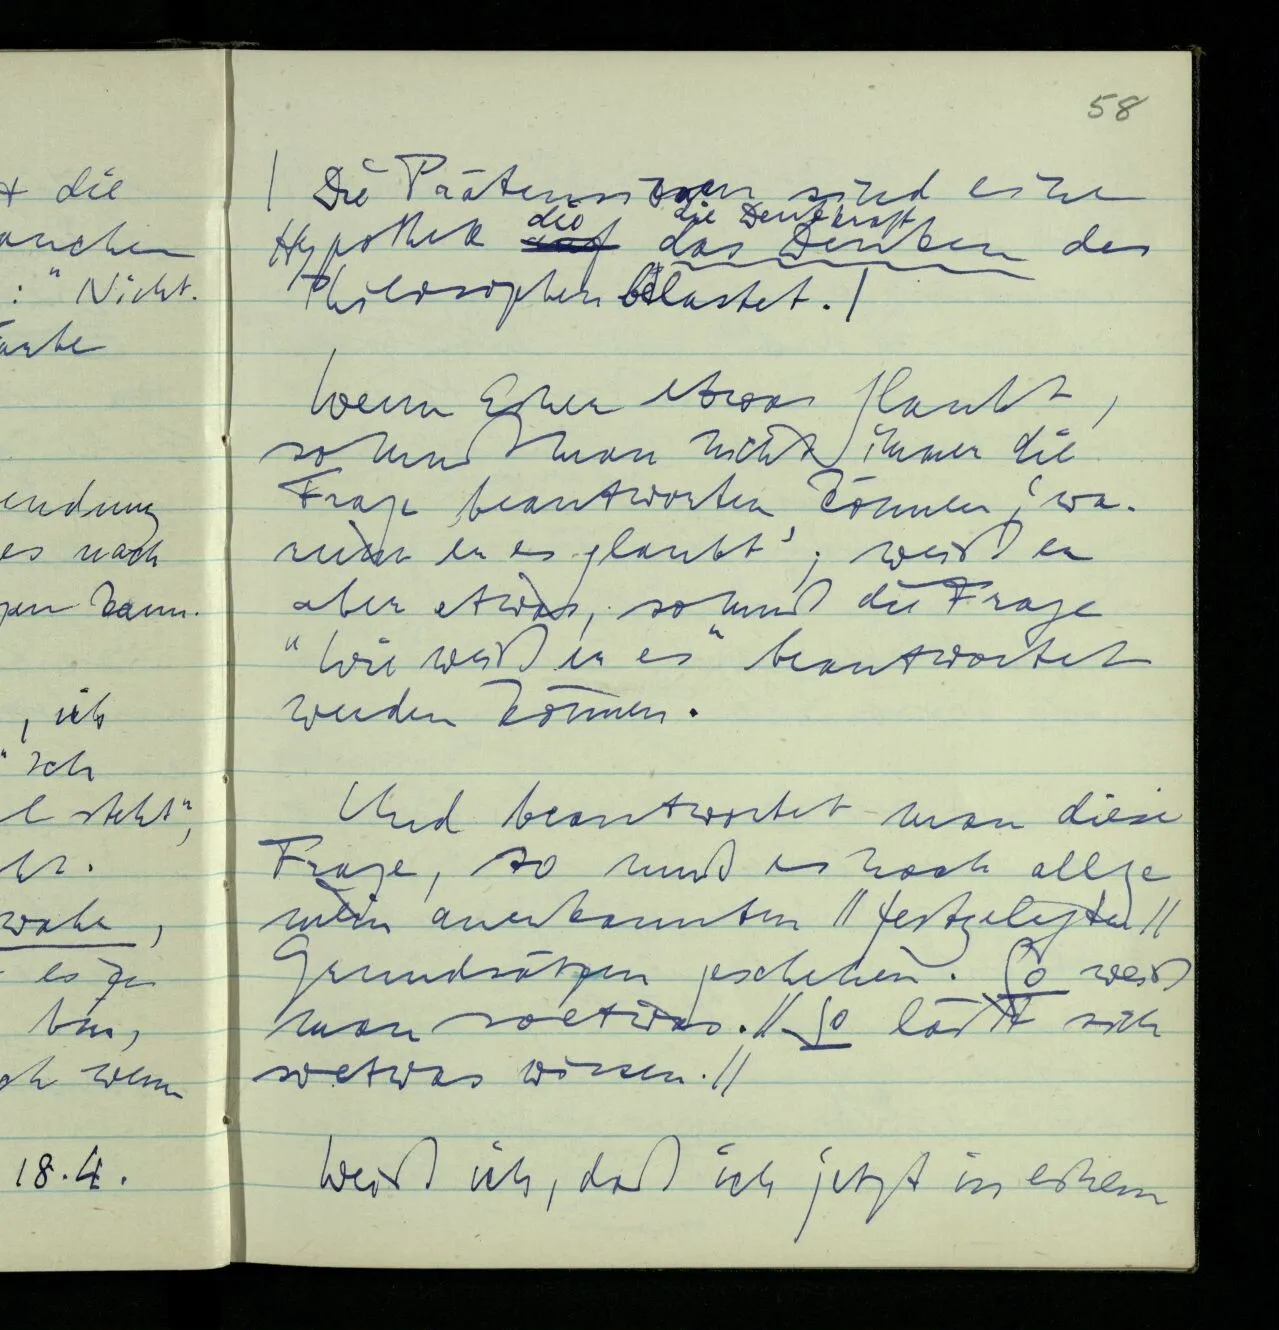 t die
auchen
: " Nicht.
endung
es nach
gen kann.
, ich
" Ich
l steht",
wahr,
es ja
bin,
ch wenn
18.4.
58
| Die Prätensionen sind eine
die die Denkkraft
Hypothek auf das Denken des
Philosophen belastet. |
Wenn Einer etwas glaubt,
so muß man nicht immer die
Frage beantworten können, 'wa-
rum er es glaubt'; weiß er
aber etwas, so muß die Frage
"Wie weiß er es" beantwortet
werden können.
Und beantwortet man diese
Frage, so muß es nach allge
mein anerkannten // festgelegten //
Grundsätzen geschehen. So weiß
man so etwas. // So läßt sich
so etwas wissen. //
Weiß ich, daß ich jetzt in einem